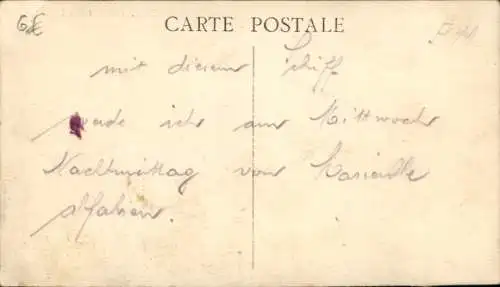 6€
CARTE POSTALE
mit diesem Schiff
werde ich am Mittwoch
Nachmittag von Marseille
abfahren.